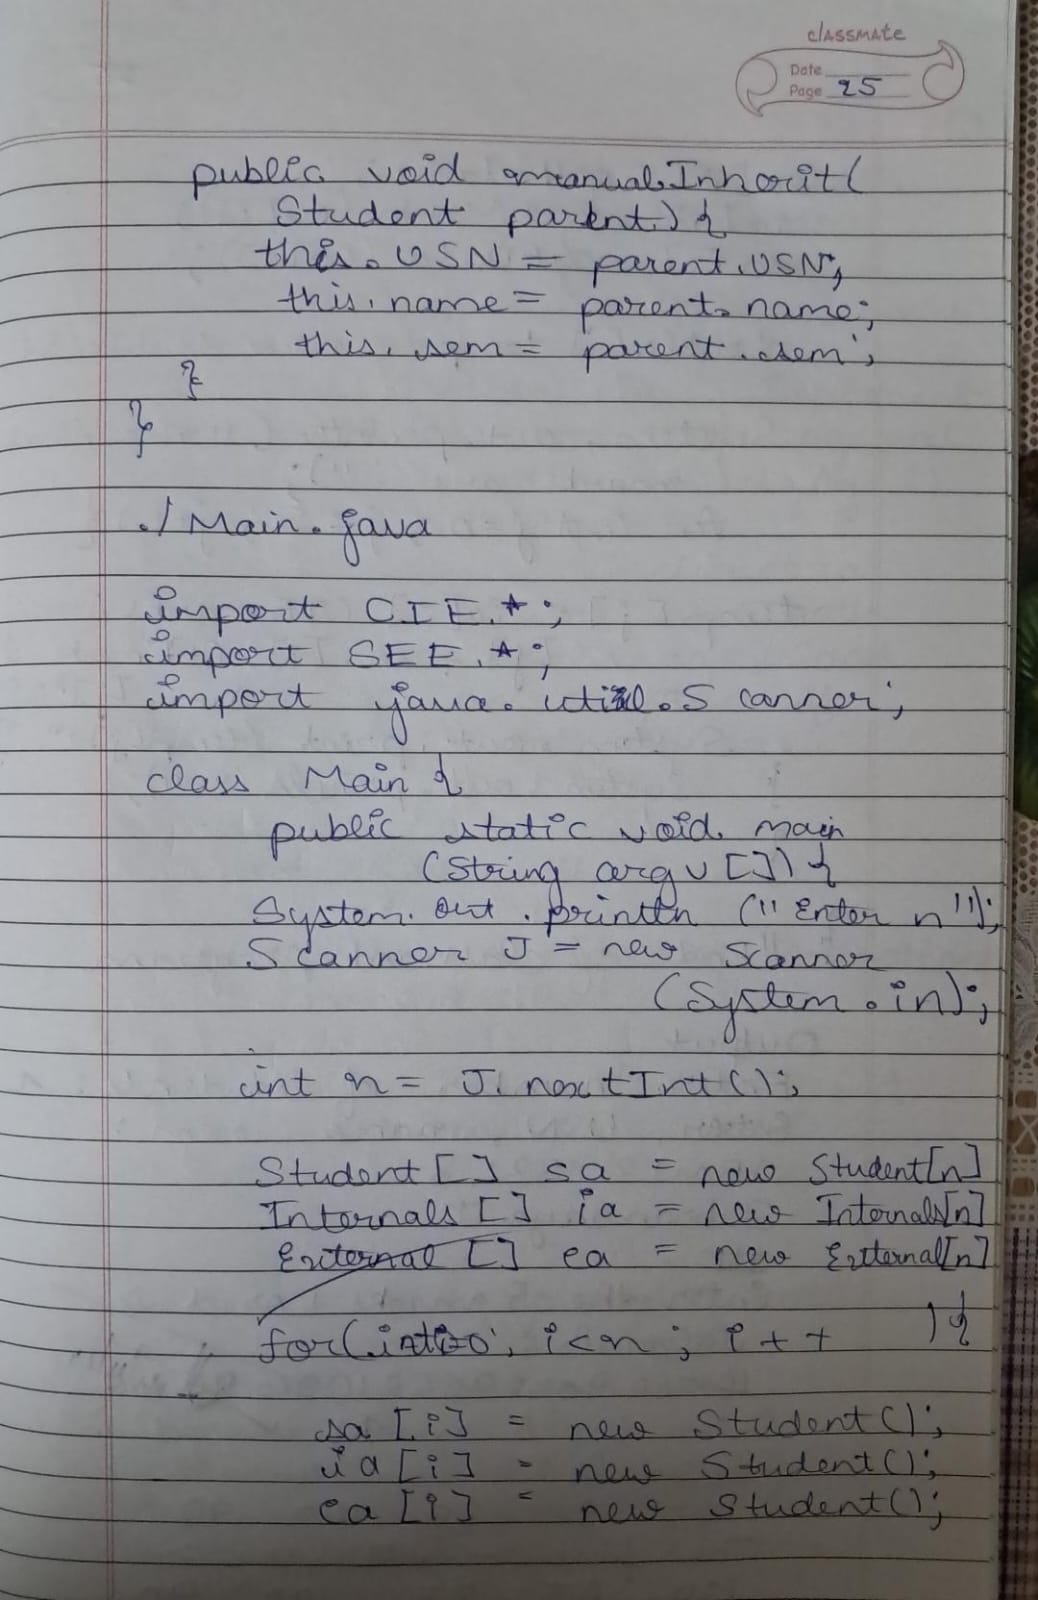 classmate
Date
Page 25
public void manualInherit(
Student parent) {
this.USN = parent.USN;
this.name = parent.name;
this.sem = parent.sem;
}
}
./Main.java
import CIE.*;
import SEE.*;
import java.util.Scanner;
class Main {
public static void main
(String argv []) {
System.out.println ("Enter n");
Scanner J = new Scanner
(System.in);
int n = J.nextInt();
Student [] sa = new Student[n]
Internals [] ia = new Internals[n]
External [] ea = new External[n]
for(int i=0; i<n; i++ ){
sa [i] = new Student();
ia [i] = new Student();
ea [i] = new Student();